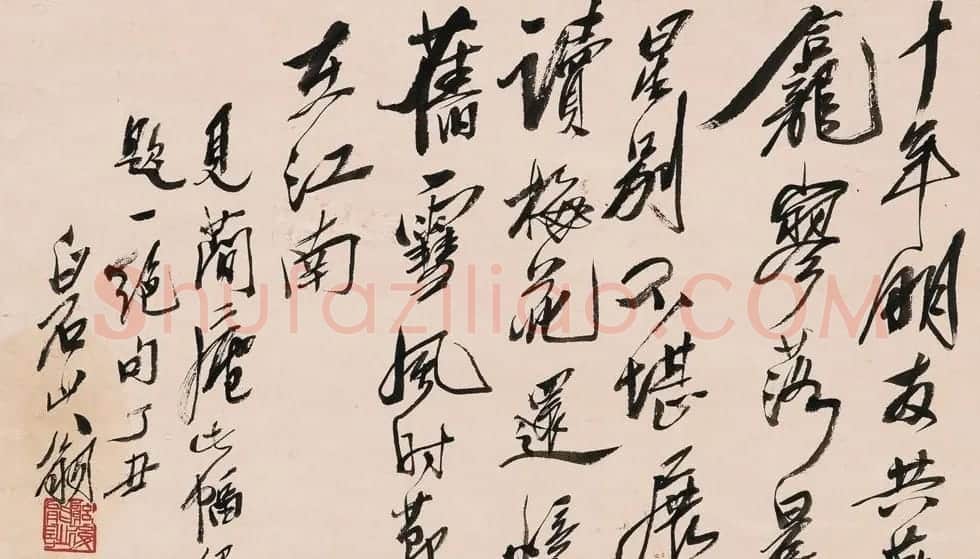 十年朋友共
龕寥落晨
星別不堪展
讀梅花還憶
舊雪風時節
在江南
見蕳庵此幅
題一絕句丁丑
白石山翁
Shufaziliao.COM